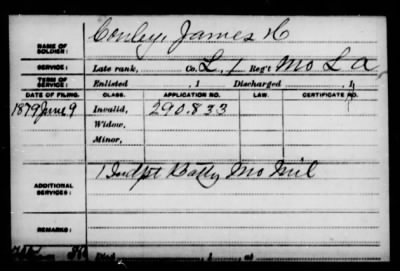 NAME OF SOLDIER: Conley, James H
SERVICE: Late rank, Co. L, 1 Reg't Mo L A
TERM OF SERVICE: Enlisted , 1 Discharged , 1
DATE OF FILING. CLASS. APPLICATION NO. LAW. CERTIFICATE NO.
1879 June 9 Invalid, 290.833
Widow,
Minor,
ADDITIONAL SERVICES: 1 Indpt Batty Mo Mil
REMARKS: